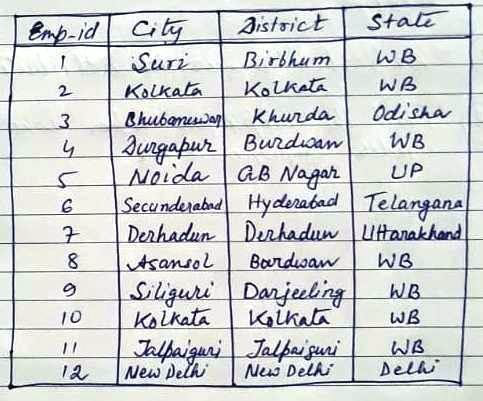 Emp-id City District State
1 Suri Birbhum WB
2 Kolkata Kolkata WB
3 Bhubaneswar Khurda Odisha
4 Durgapur Burdwan WB
5 Noida GB Nagar UP
6 Secunderabad Hyderabad Telangana
7 Derhadun Derhadun Uttarakhand
8 Asansol Bardwan WB
9 Siliguri Darjeeling WB
10 Kolkata Kolkata WB
11 Jalpaiguri Jalpaiguri WB
12 New Delhi New Delhi Delhi